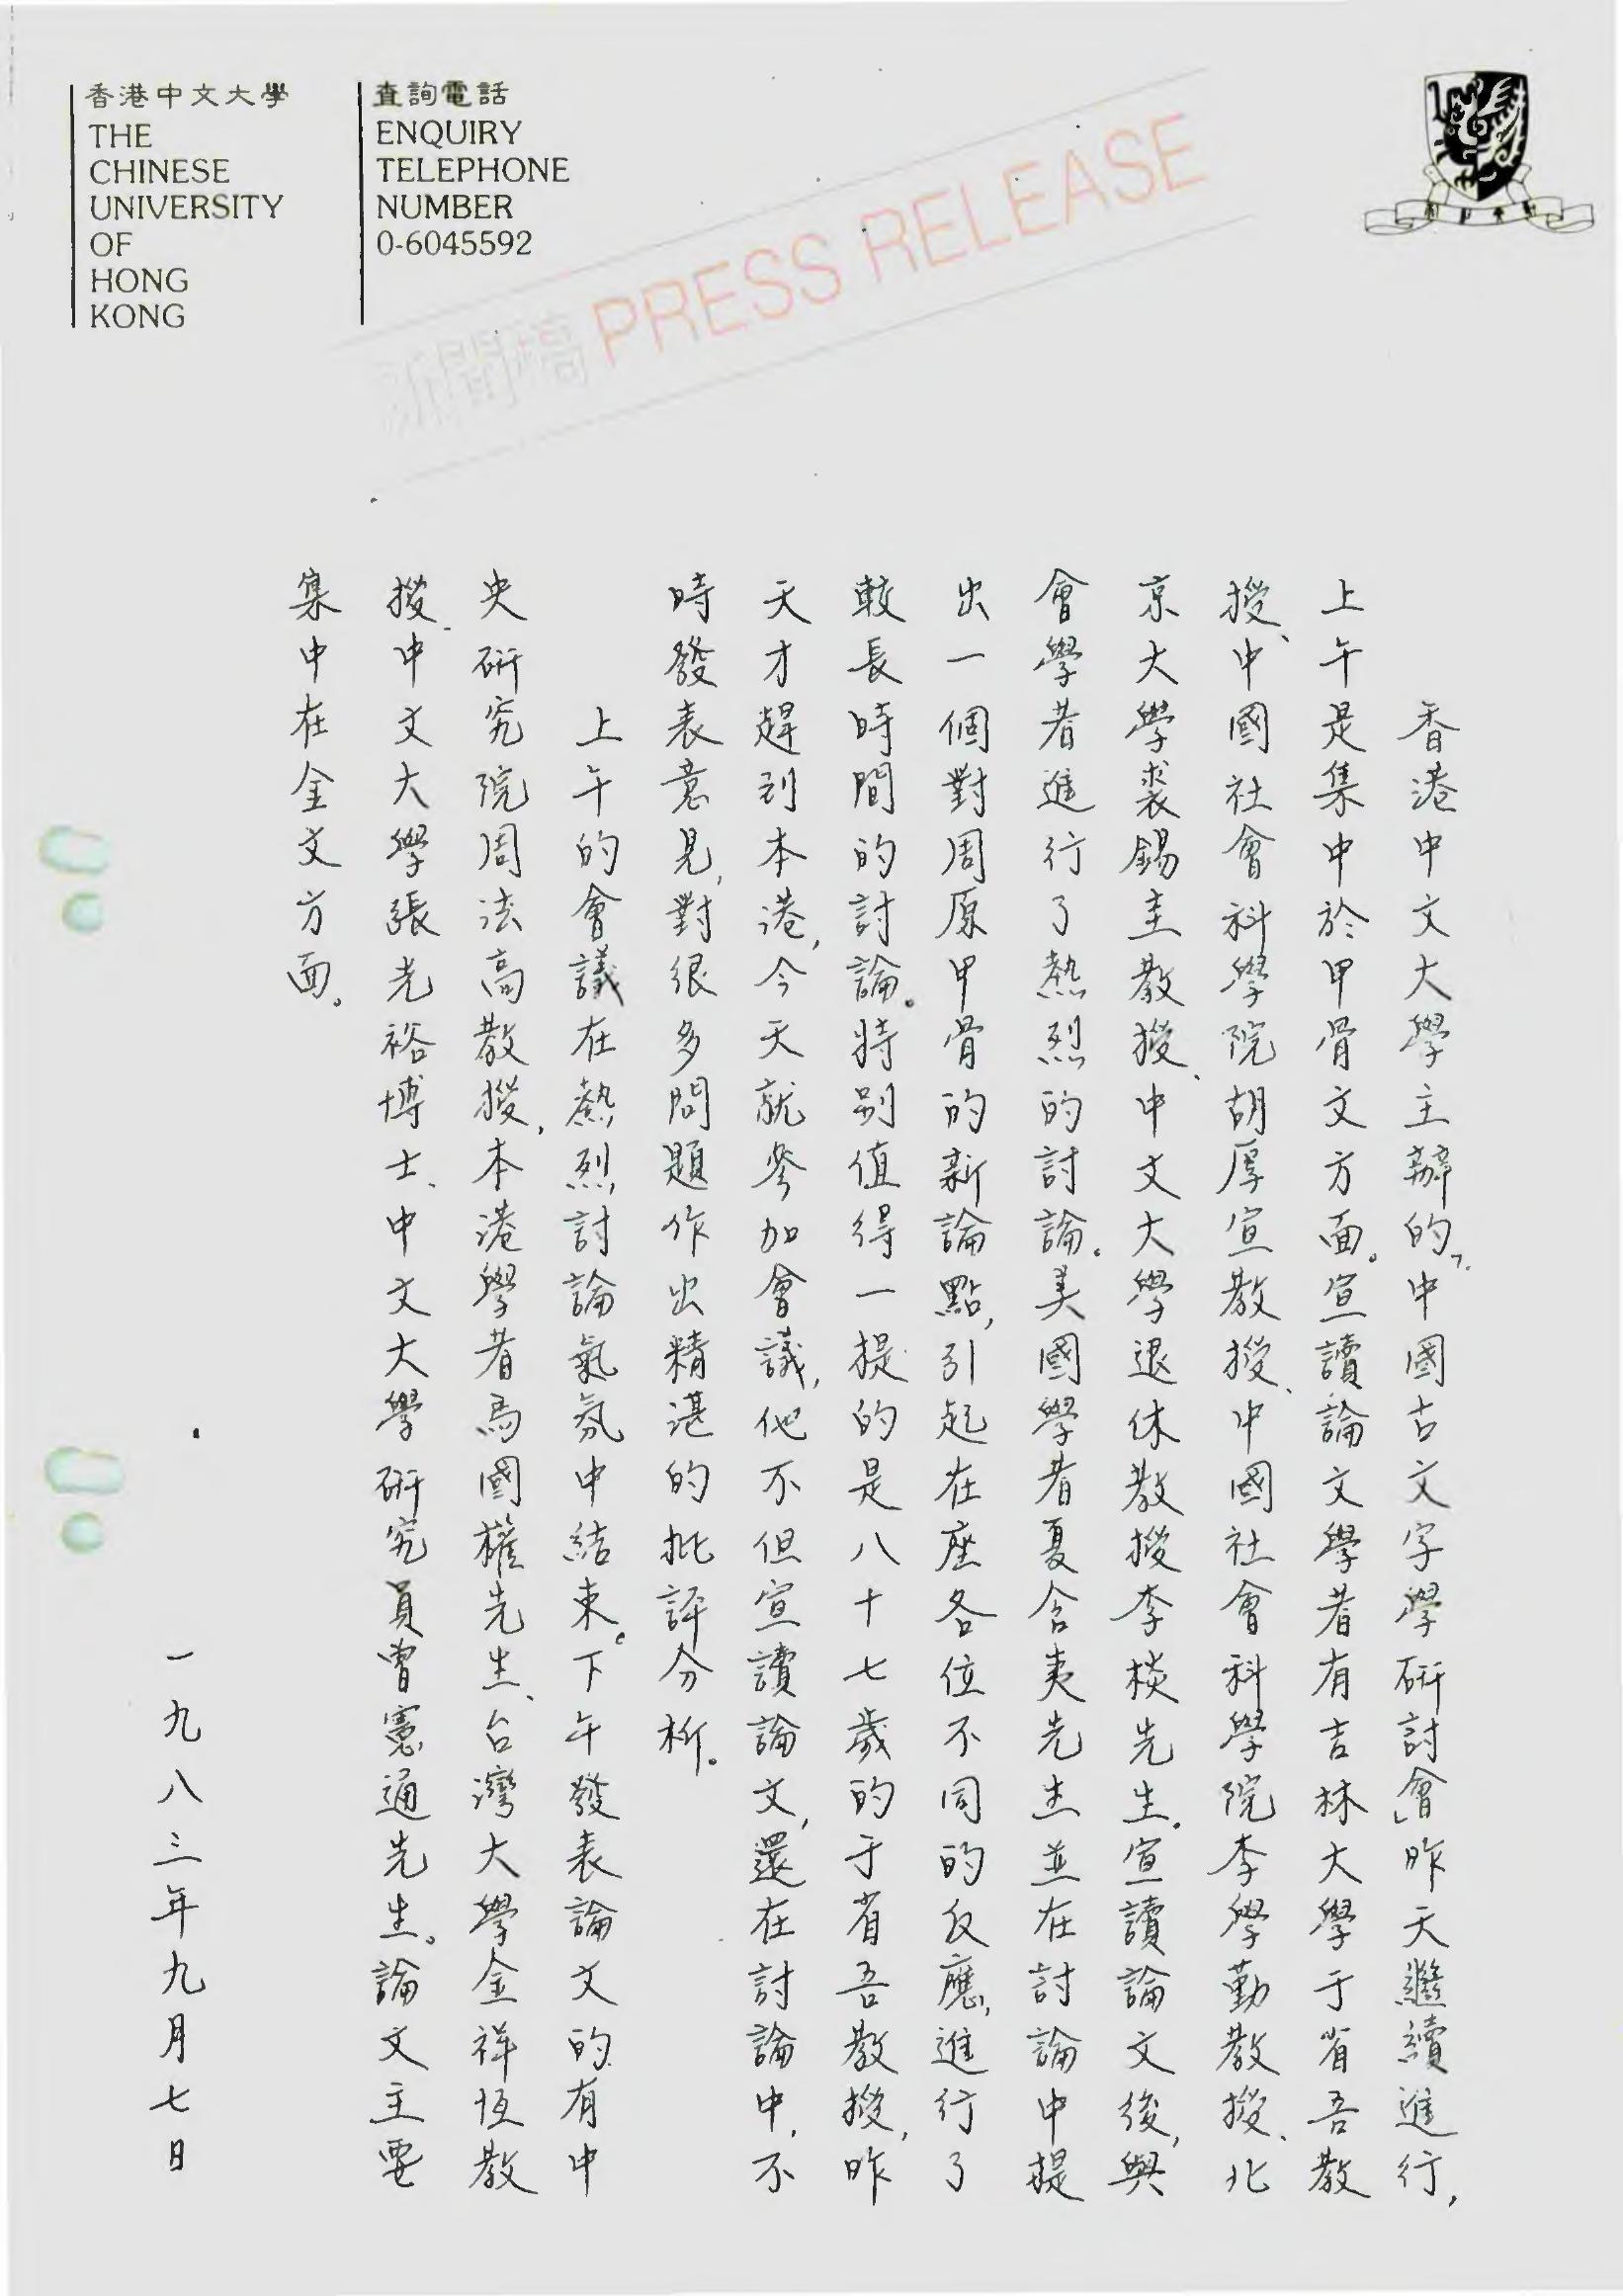 香港中文大學
THE
CHINESE
UNIVERSITY
OF
HONG
KONG
查詢電話
ENQUIRY
TELEPHONE
NUMBER
0-6045592
新聞稿 PRESS RELEASE
香港中文大學主辦的「中國古文字學研討會」昨天繼續進行,
上午是集中於甲骨文方面。宣讀論文學者有吉林大學于省吾教
授、中國社會科學院胡厚宣教授、中國社會科學院李學勤教授、北
京大學裘錫圭教授、中文大學退休教授李棪先生。宣讀論文後,與
會學者進行了熱烈的討論。美國學者夏含夷先生並在討論中提
出一個對周原甲骨的新論點,引起在座各位不同的反應,進行了
較長時間的討論。特别值得一提的是八十七歲的于省吾教授,昨
天才趕到本港,今天就參加會議,他不但宣讀論文,還在討論中,不
時發表意見,對很多問題作出精湛的批評分析。
上午的會議在熱烈討論氣氛中結束。下午發表論文的有中
央研究院周法高教授,本港學者馬國權先生、台灣大學金祥恆教
授、中文大學張光裕博士、中文大學研究員曾憲通先生。論文主要
集中在金文方面。
一九八三年九月七日